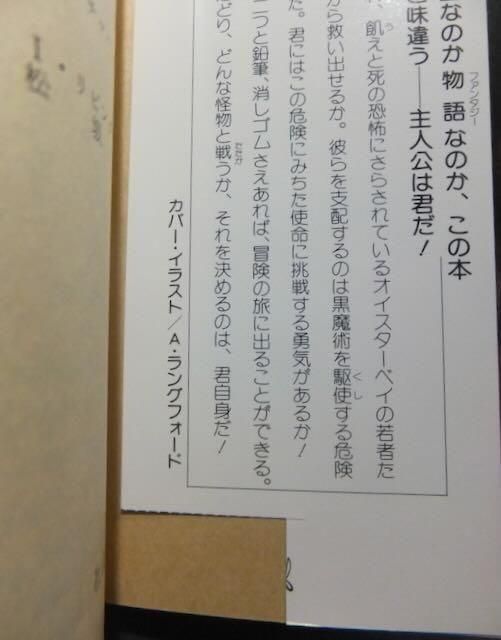 なのか物語なのか、この本
ファンタジー
味違う——主人公は君だ!
飢えと死の恐怖にさらされているオイスターベイの若者た
う
から救い出せるか。彼らを支配するのは黒魔術を駆使する危険
くし
た。君にはこの危険にみちた使命に挑戦する勇気があるか!
二つと鉛筆、消しゴムさえあれば、冒険の旅に出ることができる。
たどり、どんな怪物と戦うか、それを決めるのは、君自身だ!
たたか
カバー・イラスト/A・ラングフォード